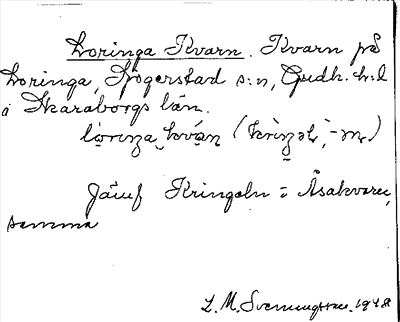 Loringa Kvarn. Kvarn på
Loringa, Högerstad s:n, Gudh. h:d
i Skaraborgs län.
lòringa kvàn (krìŋəl, -m)
Jämf Kringeln = Åsakvarn,
samma
L. M. Svenungsson. 1948